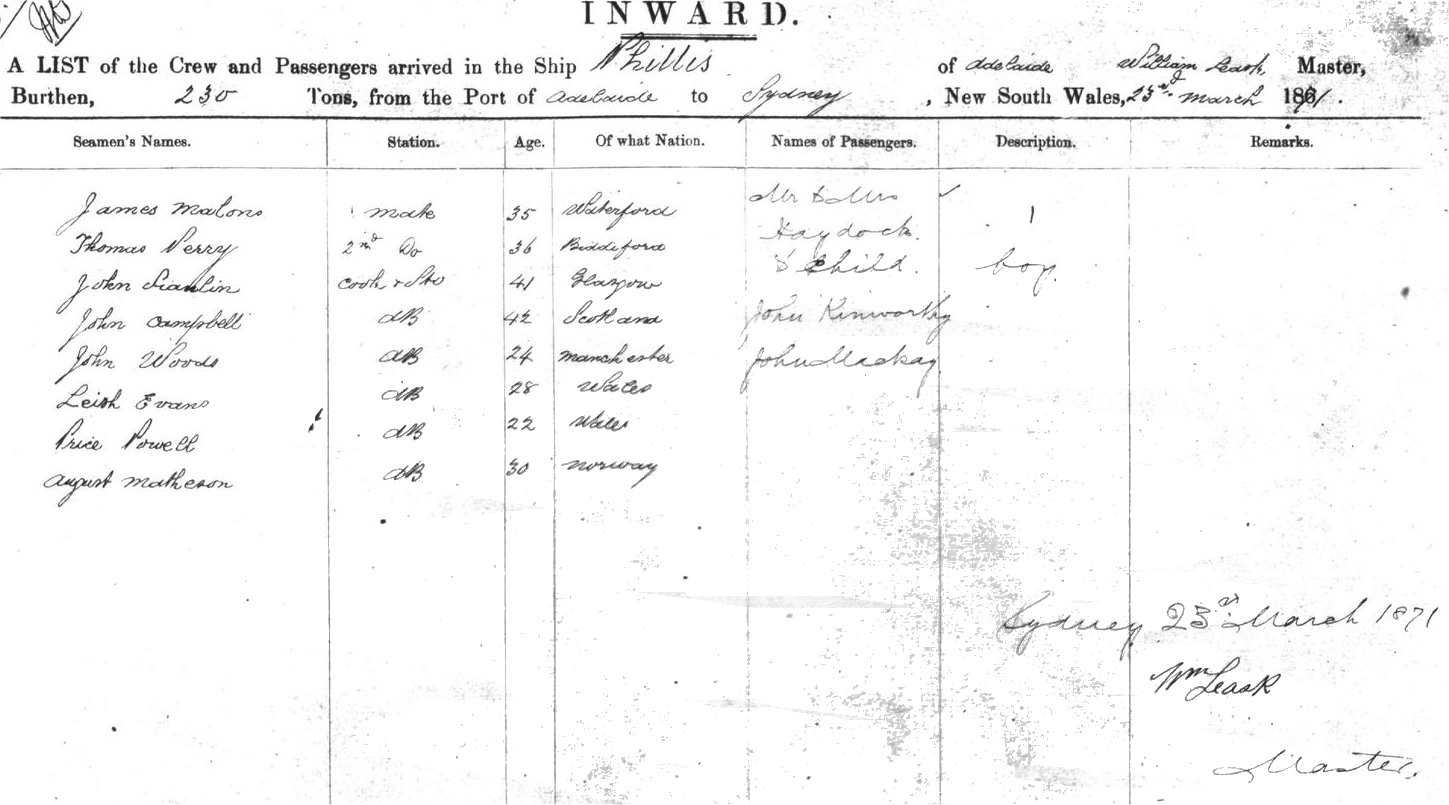 INWARD.
A LIST of the Crew and Passengers arrived in the Ship Phillis of Adelaide William Leask, Master,
Burthen, 230 Tons, from the Port of Adelaide to Sydney, New South Wales, 23rd March 1871.
Seamen's Names. Station. Age. Of what Nation. Names of Passengers. Description. Remarks.
James Malone mate 35 Waterford Mr & Mrs
Thomas Perry 2nd Do 36 Biddeford Haydock. 1
John Cook & Std 41 Glasgow & Child. boy.
John Campbell AB 42 Scotland John Kinworthy
John Woods AB 24 Manchester John Mackay
Leish Evans AB 28 Wales
Price Powell AB 22 Wales
August Matheson AB 30 Norway
Sydney 23rd March 1871
Wm Leask
Master.